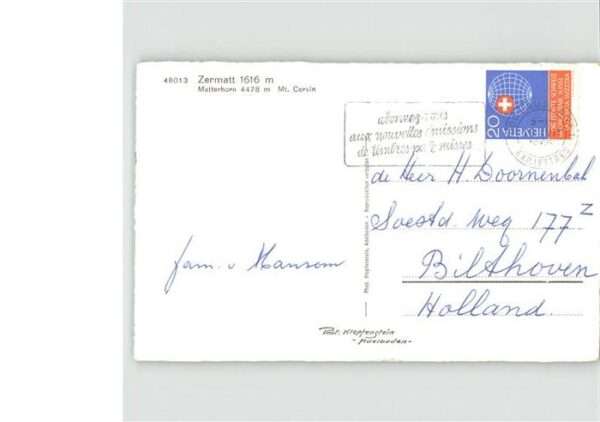 48013 Zermatt 1616 m
Matterhorn 4478 m Mt. Cervin
HELVETIA 20
abonnez-vous
aux nouvelles émissions
de timbres-poste suisses
de Heer H. Doornenbal
Soestd. Weg 177 Z
Bilthoven
Holland.
fam. v Mansom
Phot. Klopfenstein, Adelboden
Phot. Klopfenstein
- Adelboden -